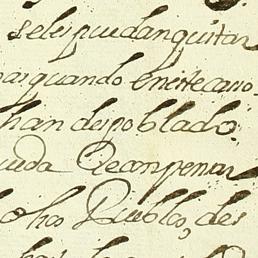 se les puedan quitar
quando en este caso
han despoblado
Recompensar
dhos Pueblos, des